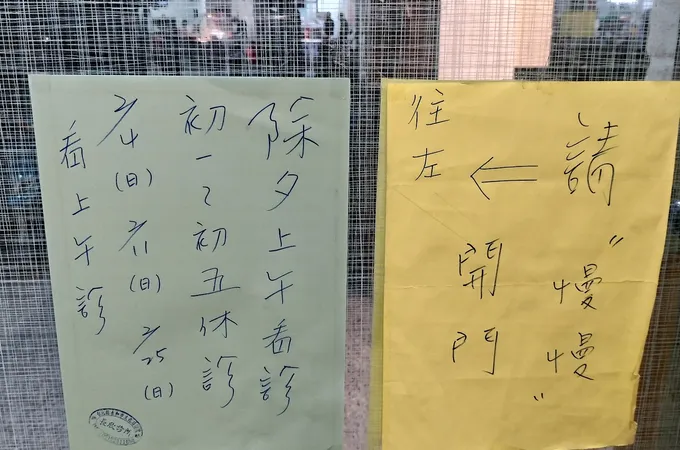 除夕上午看診
初一~初五休診
2/4(日) 2/11(日) 2/25(日)
看上午診
請"慢慢"
往左
⇐
開門